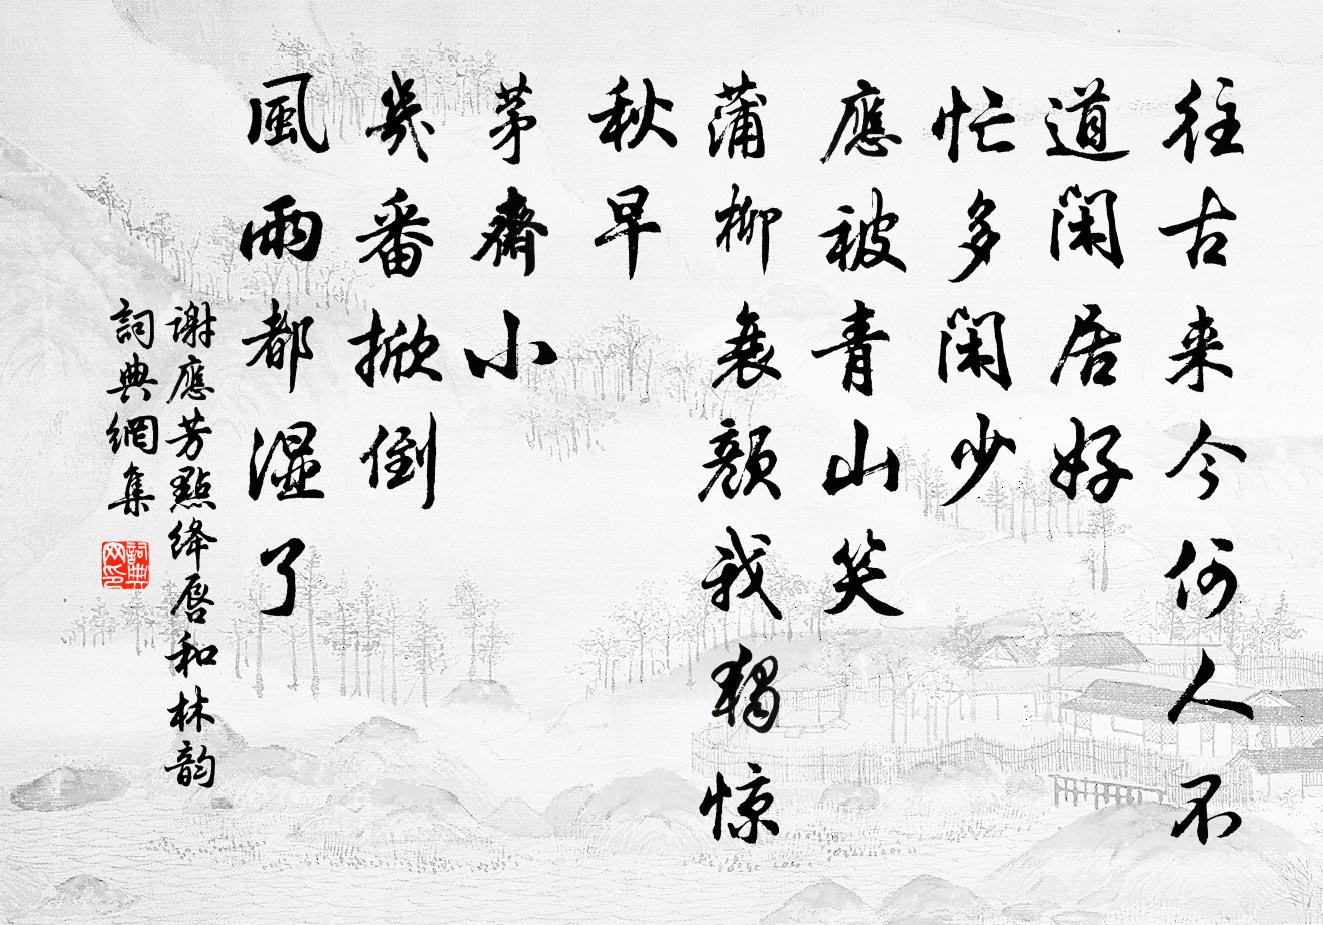 往古来今何人不
道闲居好
忙多闲少
應被青山笑
蒲柳衰颜我獨惊
秋早
茅齋小
幾番掀倒
風雨都湿了
谢應芳點绛唇和林韵
詞典網集
詞典网印